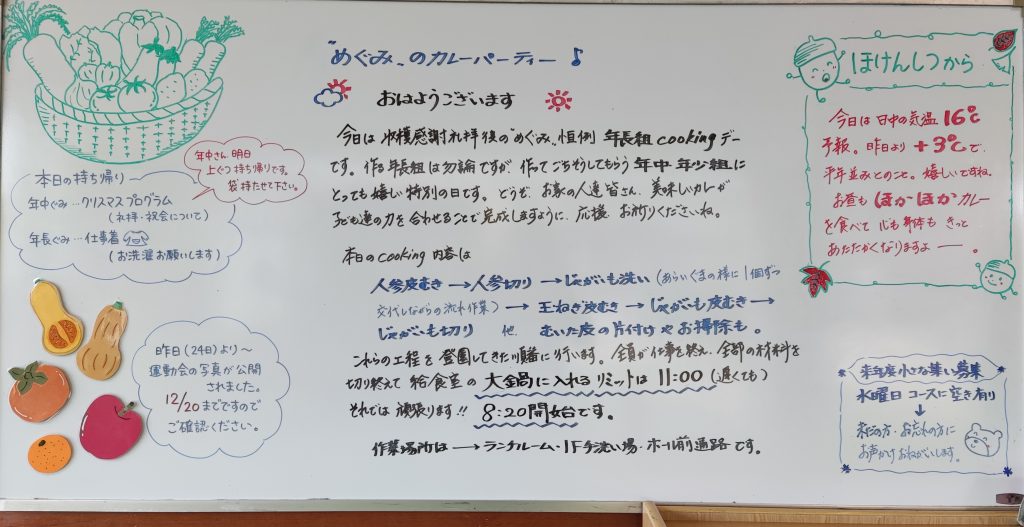 "めぐみ"のカレーパーティー♪
おはようございます
今日は収穫感謝礼拝後の"めぐみ"恒例 年長組cookingデー
です。作る年長組は勿論ですが、作ってごちそうしてもらう年中・年少組に
とっても嬉しい特別の日です。どうぞ お家の人達皆さん、美味しいカレーが
子ども達の力を合わせることで完成しますように、応援、お祈りくださいね。
本日のcooking内容は
人参皮むき→人参切り→じゃがいも洗い(あらいぐまの様に1個ずつ
交代しながらの流れ作業)→玉ねぎ皮むき→じゃがいも皮むき→
じゃがいも切り 他、むいた皮の片付けやお掃除も。
これらの工程を登園してきた順番に行います。全員が仕事を終え、全部の材料を
切り終えて給食室の大鍋に入れるリミットは11:00(遅くても)
それでは頑張ります!! 8:20開始です。
作業場所は→ランチルーム・1F手洗い場・ホール前通路です。
年中さん、明日
上ぐつ持ち帰りです。
袋持たせて下さい。
本日の持ち帰り
年中ぐみ…クリスマスプログラム
(礼拝・祝会について)
年長ぐみ…仕事着
(お洗濯お願いします)
昨日(24日)より〜
運動会の写真が公開
されました。
12/20までですので
ご確認ください。
ほけんしつから
今日は日中の気温16℃
予報。昨日より+3℃で、
平年並みとのこと。嬉しいですね。
お昼も ほかほかカレー
を食べて 心も身体も きっと
あたたかくなりますよー。
来年度小さな集い募集
水曜日コースに空き有り
↓
未だの方・お忘れの方に
お声かけおねがいします。